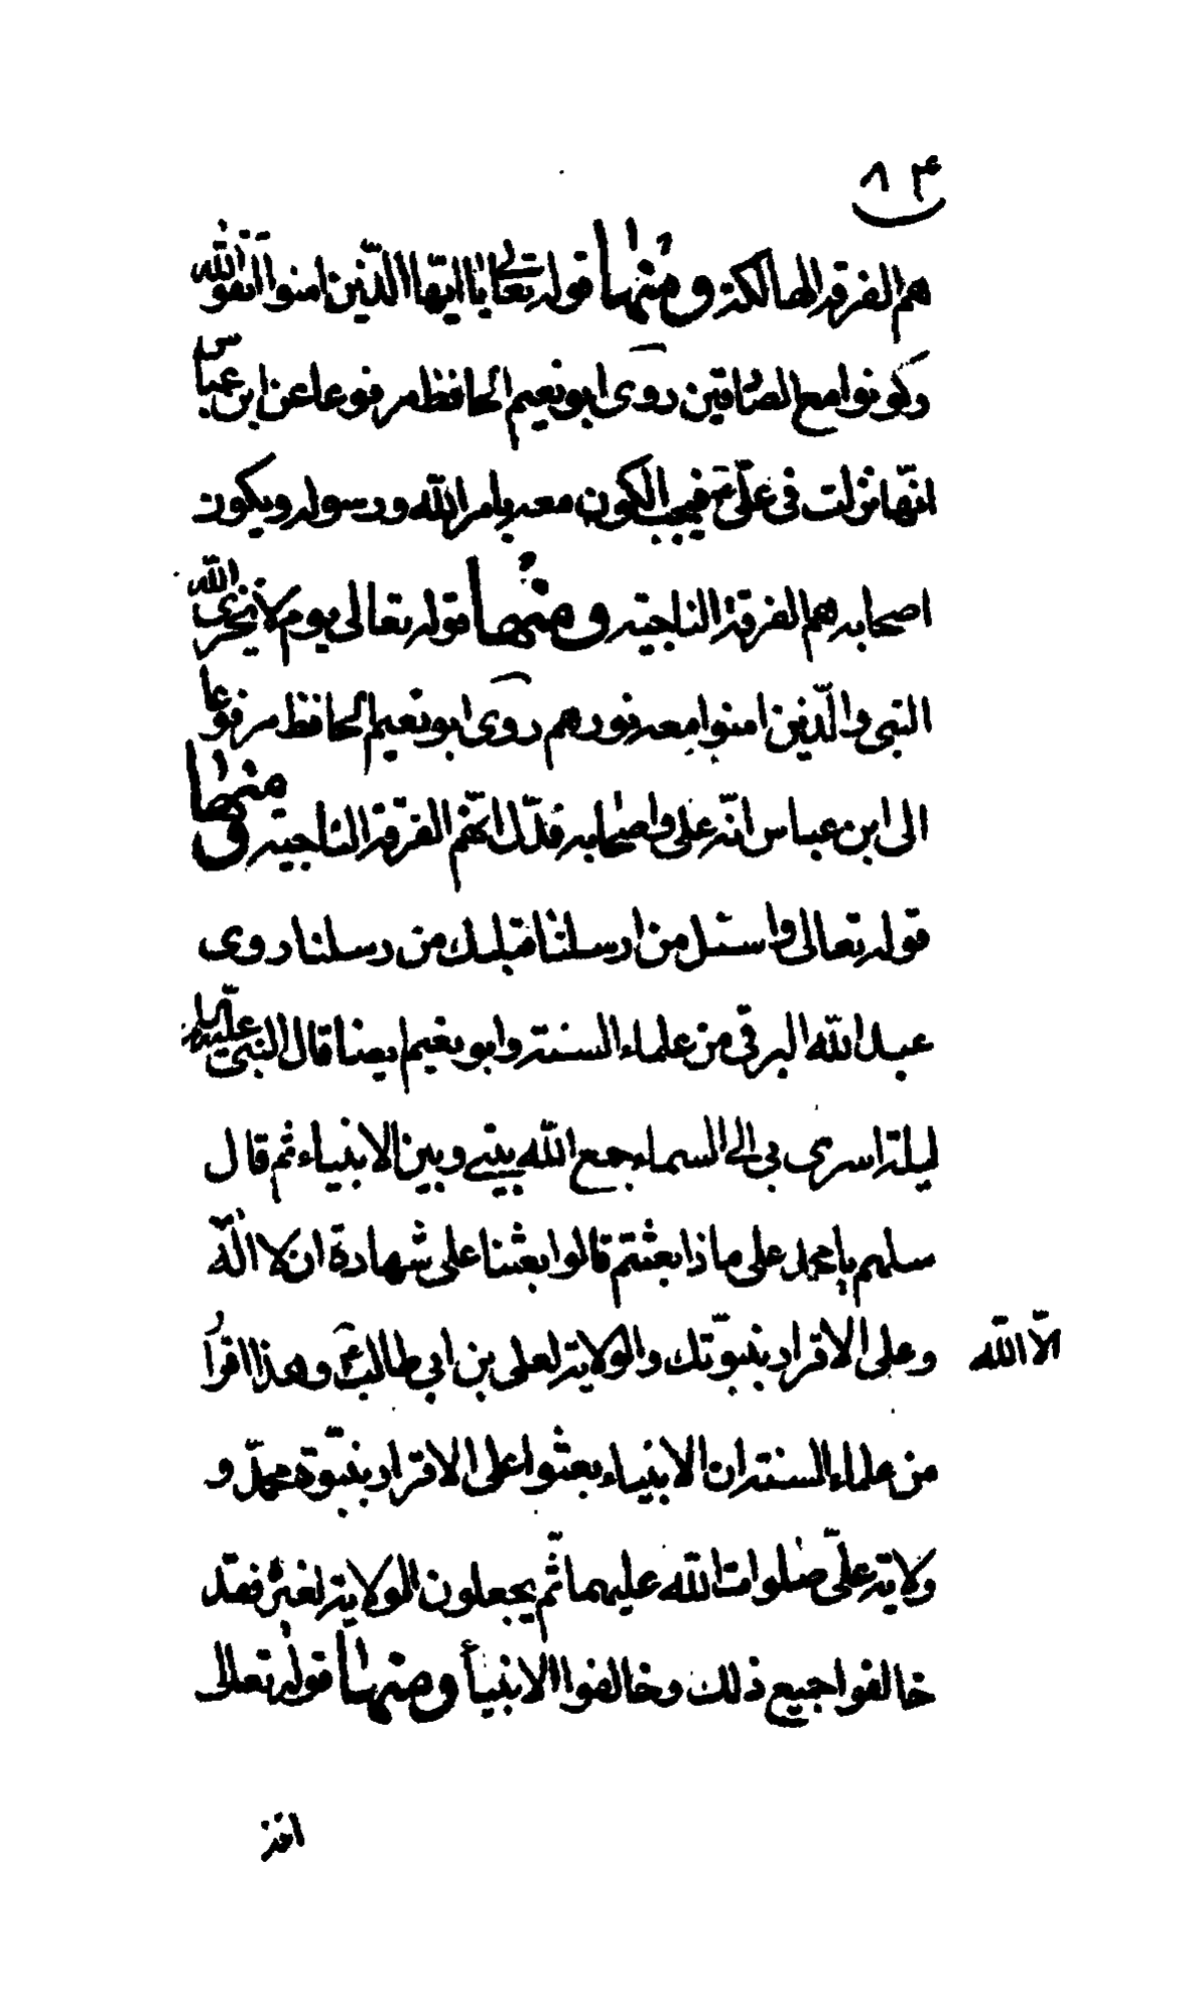 ٨٣
هم الفرقة الهالكة ومنها قوله تعالى يا ايّها الّذين امنوا اتّقوا الله
وكونوا مع الصّادقين روى ابو نعيم الحافظ مرفوعا عن ابن عبّاس
انّها نزلت فى علىّ ع فيجب الكون معه بامر الله ورسوله ويكون
اصحابه هم الفرقة الناجية ومنها قوله تعالى يوم لا يخزى الله
النبى والّذين امنوا معه نورهم روى ابو نعيم الحافظ مرفوعا
الى ابن عباس انّه على واصحابه فدّل انّهم الفرقة الناجية ومنها
قوله تعالى واسئل من ارسلنا قبلك من رسلنا روى
عبد الله البرقى من علماء السنة وابو نعيم ايضا قال النبى عليه السلام
ليلة اسرى بى الى السماء جمع الله بينى وبين الانبياء ثم قال
سلهم يا محمد على ماذا بعثتم قالوا بعثنا على شهادة ان لا اله
الّا الله
وعلى الاقرار بنبوّتك والولاية لعلى بن ابي طالب ع وهذا اقرار
من علماء السنة ان الانبياء بعثوا على الاقرار بنبوّة محمّد و
ولاية علىّ صلوات الله عليهما ثم يجعلون الولاية لغيره فقد
خالفوا جميع ذلك وخالفوا الانبيأ ومنها قوله تعالى